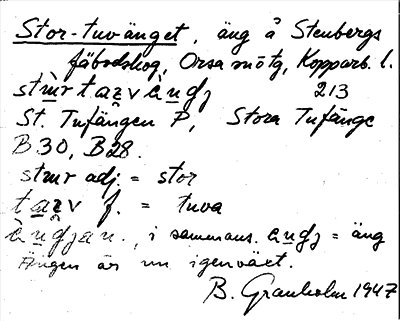 Stor-tuvänget, äng å Stenbergs
fäbodskog, Orsa mötg, Kopparb. l.
213
St. Tufängen P, Stora Tufänge
B30, B28.
adj. = stor
f. = tuva
i sammans. = äng
Ängen är nu igenväxt.
B. Granholm 1947